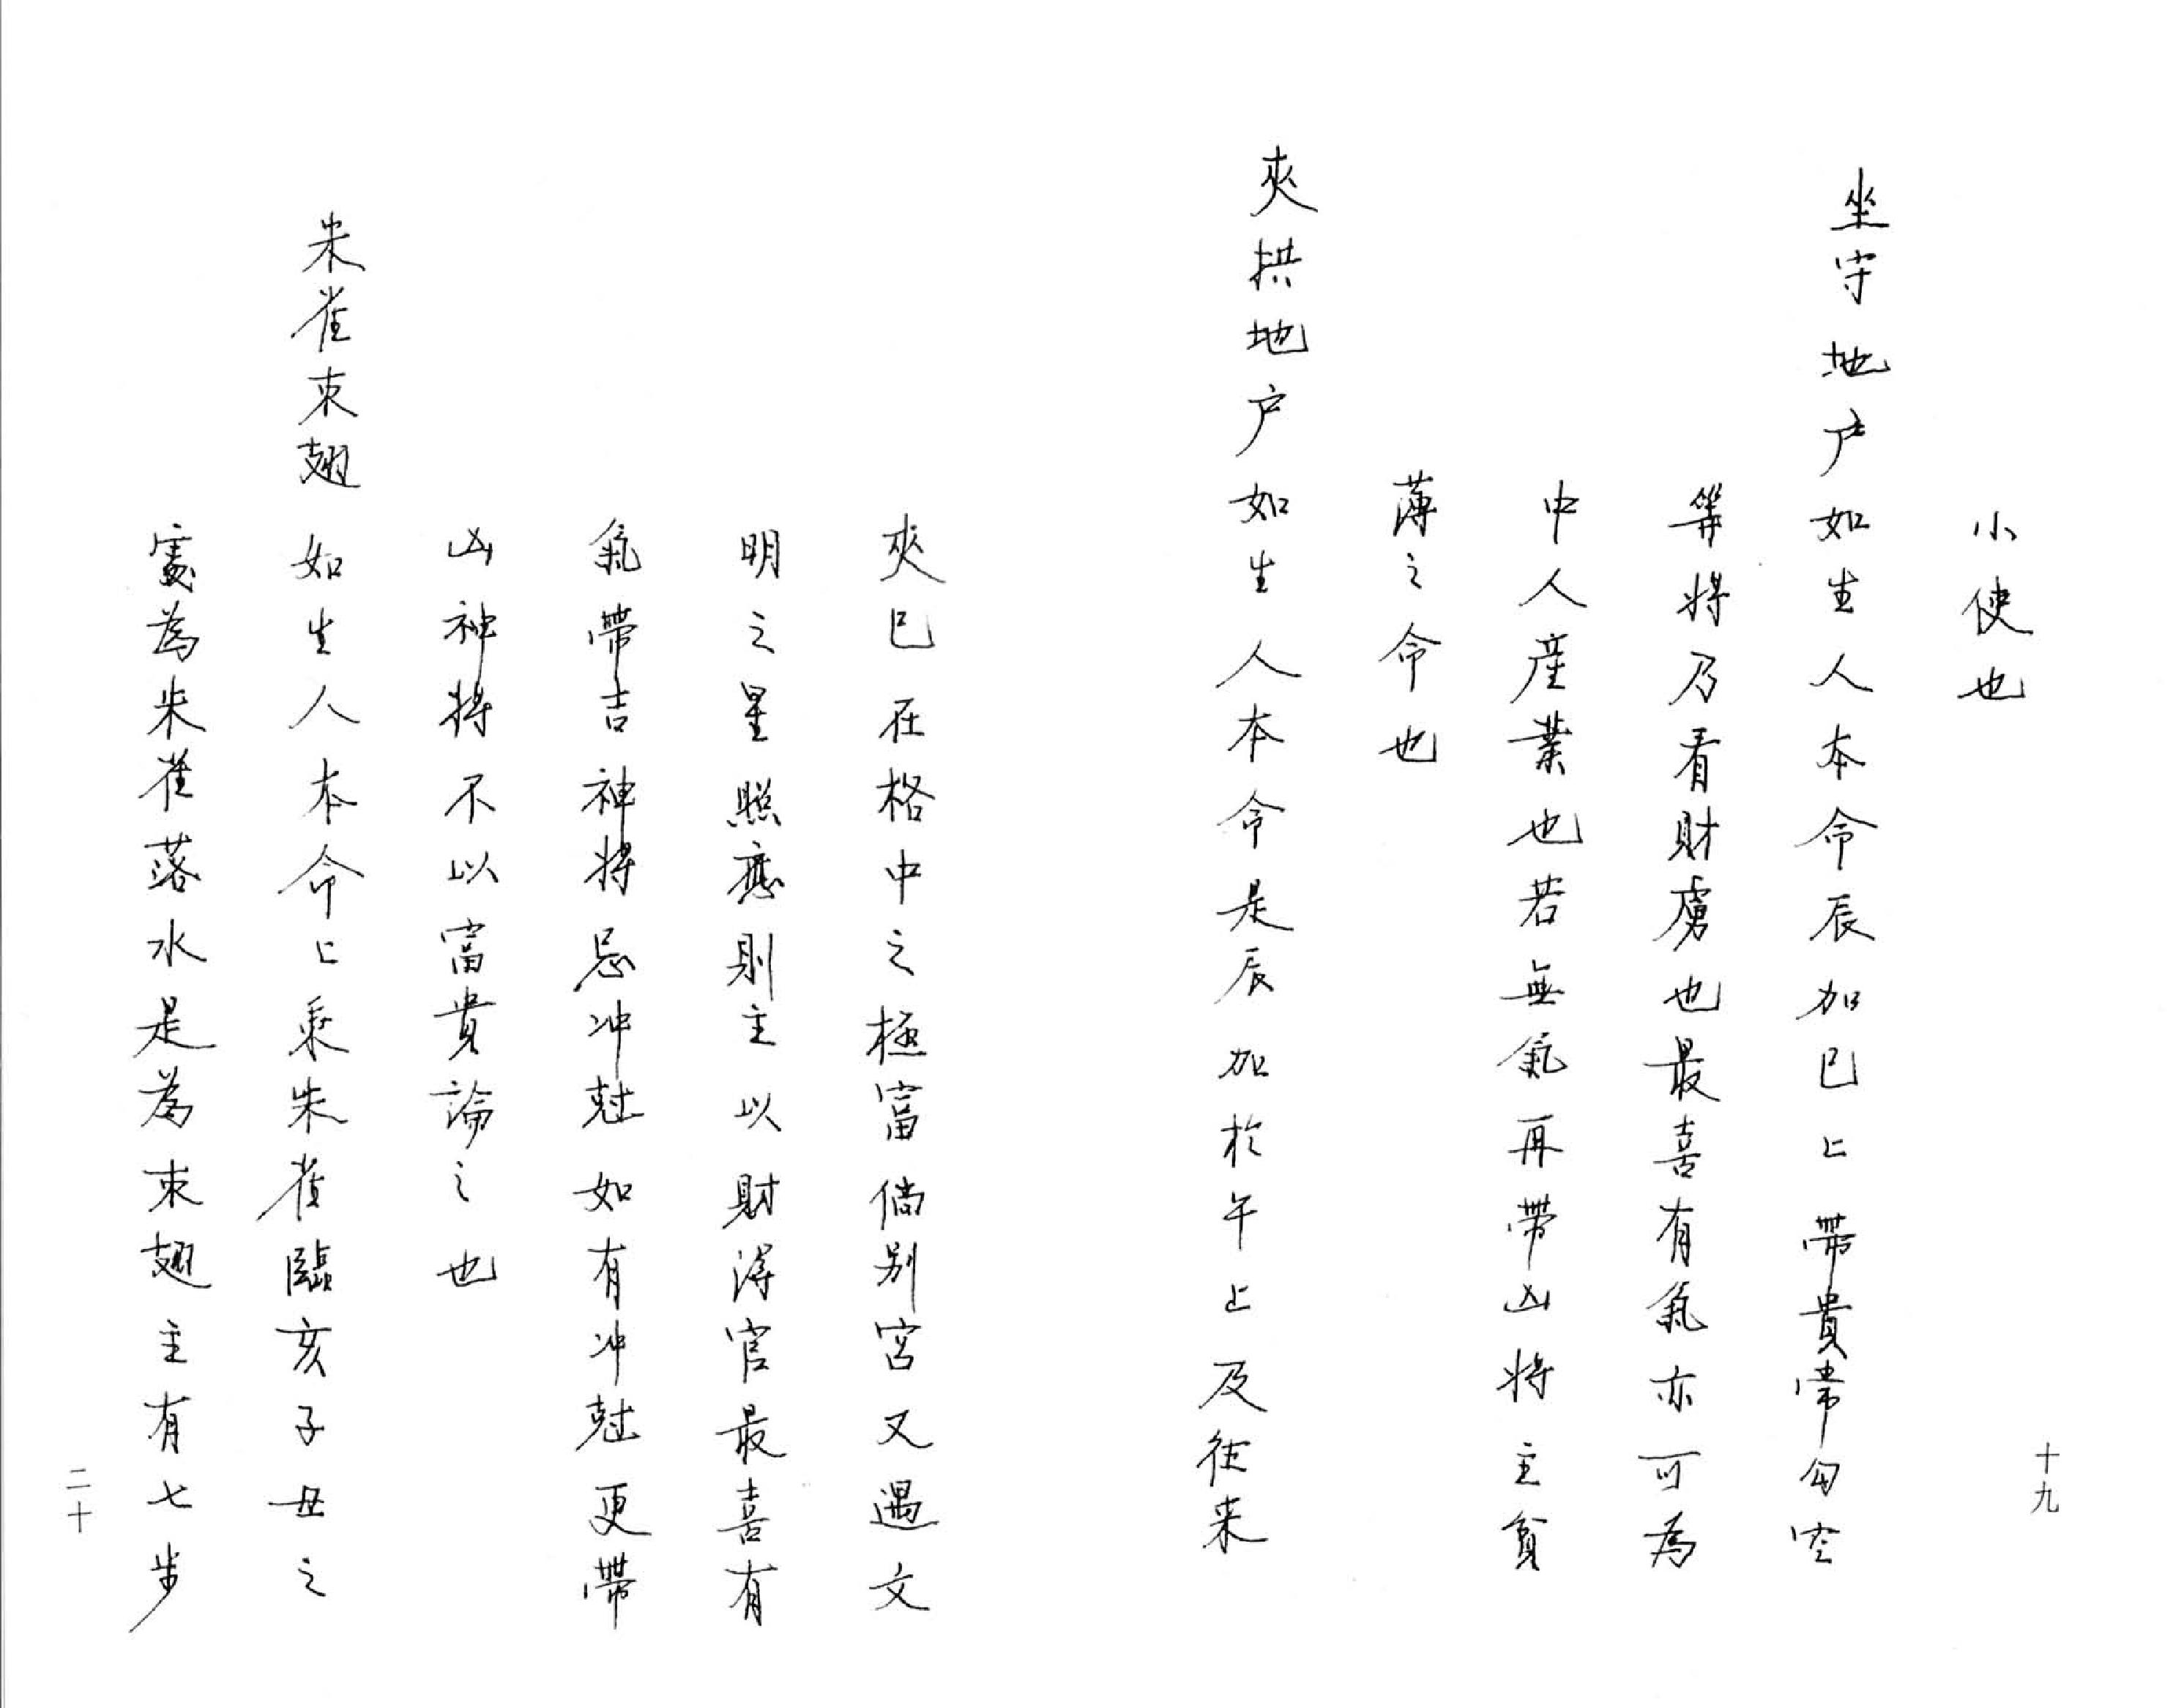 小使也
坐守地户如生人本命辰加巳上帶貴常勾空
等將乃看財虜也最喜有氣亦可為
中人產業也若無氣再帶凶将主貧
薄之命也
夾拱地户如生人本命是辰加於午上及往来
十九
夾巳在格中之極富倘别宮又遇文
明之星照應則主以財得官最喜有
氣帶吉神將忌冲尅如有冲尅更帶
凶神將不以富貴論之也
朱雀束翅如生人本命上乘朱雀臨亥子丑之
為朱雀落水是為束翅主有七步
二十